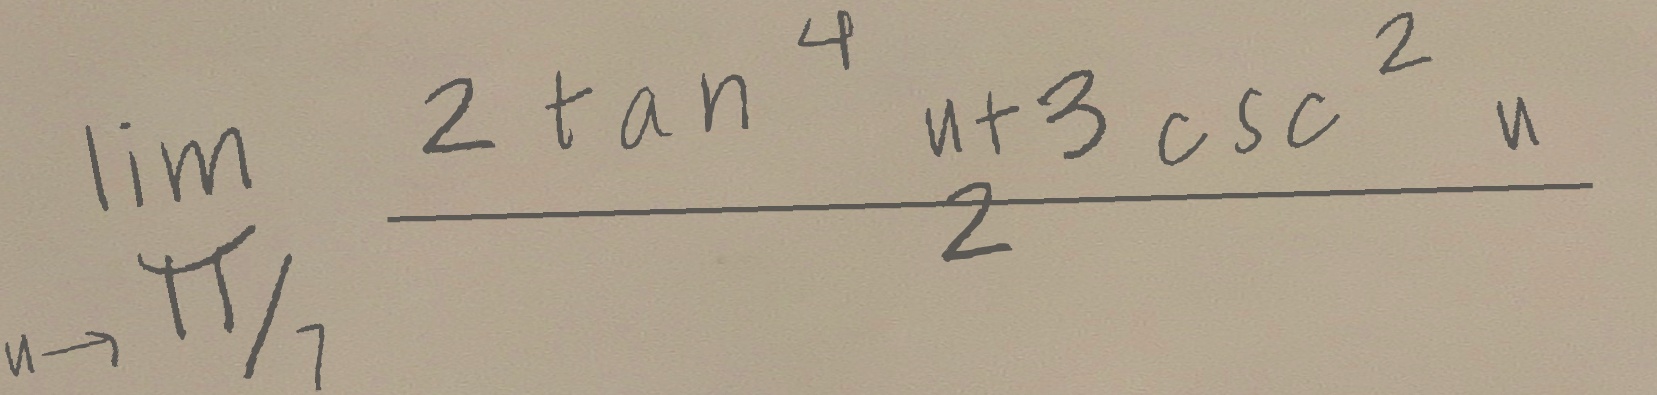 \lim_{u \to \pi/7} \frac{2 \tan^4 u + 3 \csc^2 u}{2}